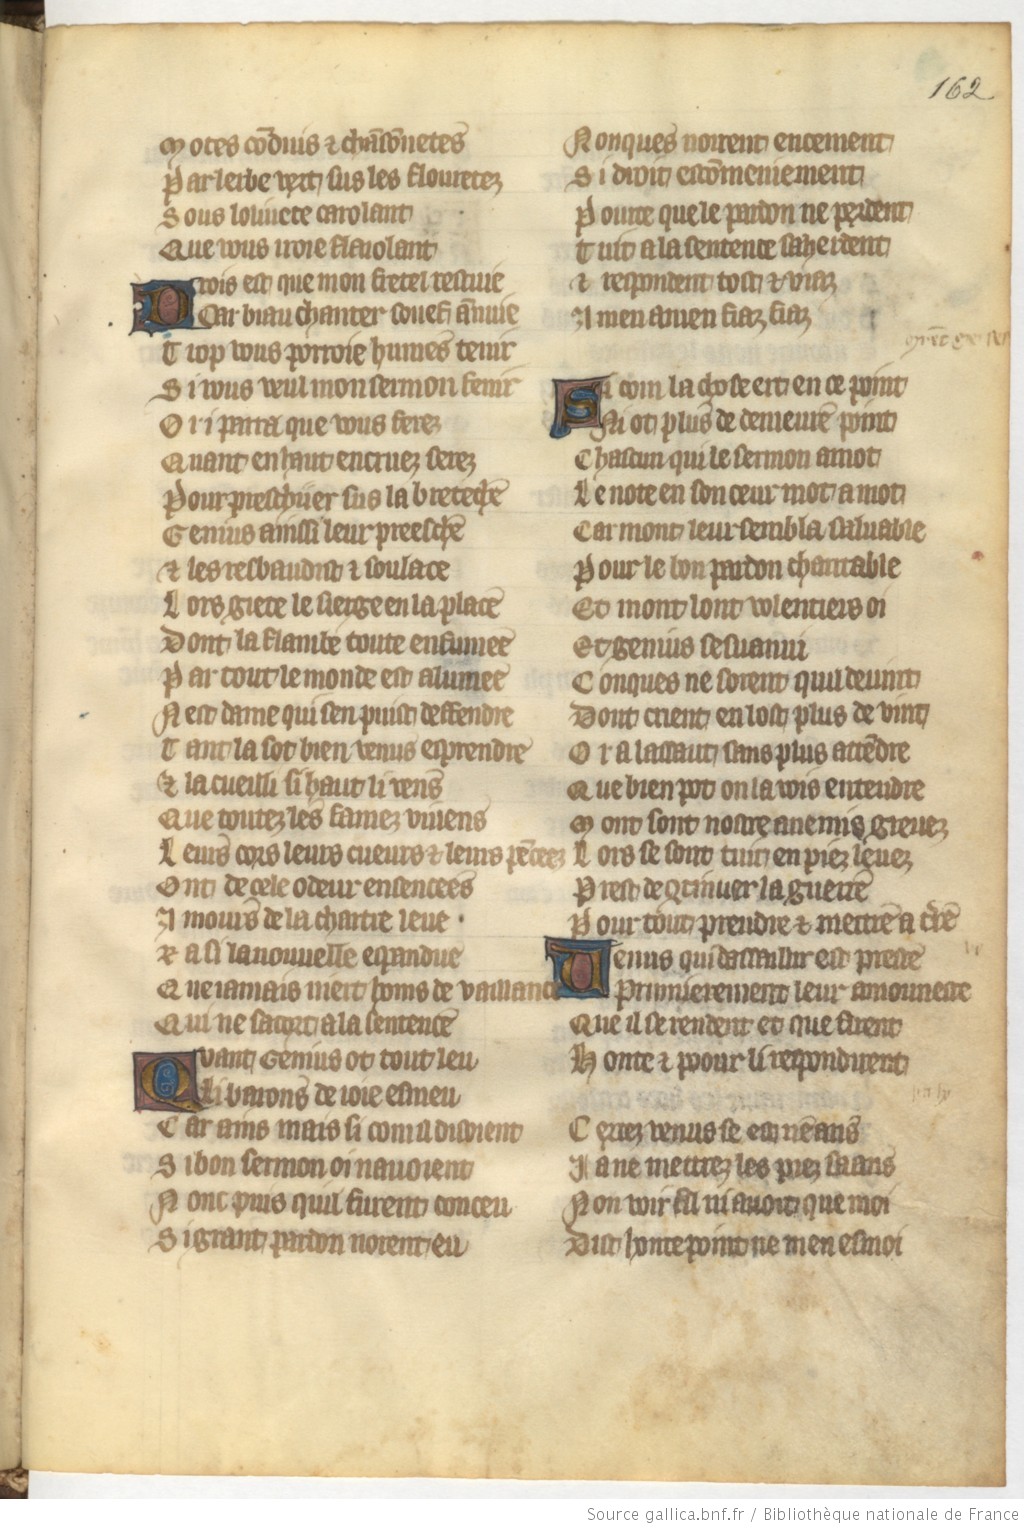 162
Motes cõduis ⁊ chãsõnetes
Par lerbe vert sus les flouretez
Sous loliuete carolant
Que vous uoie flauolant
Drois est que mon fretel restuie
Car biau chanter souef ãnuie
Trop vous porroie humes tenir
Si vous veul mon sermon fenir
Or i parra que vous ferez
Quant en haut encruez serez
Pour preschier sus la bretesche
Genius ainssi leur preesche
⁊ les resbaudist ⁊ soulace
Lors giete le sierge en la place
Dont la flambe toute enfumee
Par tout le monde est alumee
Nest dame qui sen puist deffendre
Tant la sot bien venus esprendre
⁊ la cueilli si haut li vens
Que toutez les famez viuens
Leurs cors leurs cueurs ⁊ leurs pẽcees
Ont de cele odeur encencees
de la chartre leue
a si la nouuelle espandue
Que iamais niert homs de vaillance
Qui ne sacort a la sentence
Quant Genius ot tout leu
Li barons de ioie esmeu
Car ains mais si com il disoient
Si bon sermon oi nauoient
Nonc puis quil furent conceu
Si grant pardon norent eu
Nonques noirent encement
Si droit escõmeniement
Pource que le pardon ne perdent
Tuit a la sentence saherdent
⁊ respondent tost ⁊ viaz
Amen amen fiaz fiaz
Si com la chose ert en ce point
Ni ot plus de demeure point
Chascun qui le sermon amot
Le note en son cœur mot a mot
Car mont leur sembla saluable
Pour le bon pardon charitable
Et mont lont volentiers oi
Et genius sesuanui
Conques ne sorent quil deuint
Dont crient en lost plus de vint
Or a lassaut sans plus attẽdre
Que bien pot on la vois entendre
Mont sont nostre anemis greuez
Lors se sont tuit en piez leuez
Prest de ꝯtinuer la guerre
Pour tout prendre ⁊ mettre a t̃re
Venus qui dassaillir est preste
Primierement leur amoneste
Que il se rendent et que firent
Honte ⁊ poour li respondirent
Certez venus se est nẽans
Ja ne mettrez les piez saans
Non voir sil ni auoit que moi
Dist honte point ne men esmoi
Source gallica.bnf.fr / Bibliothèque nationale de France